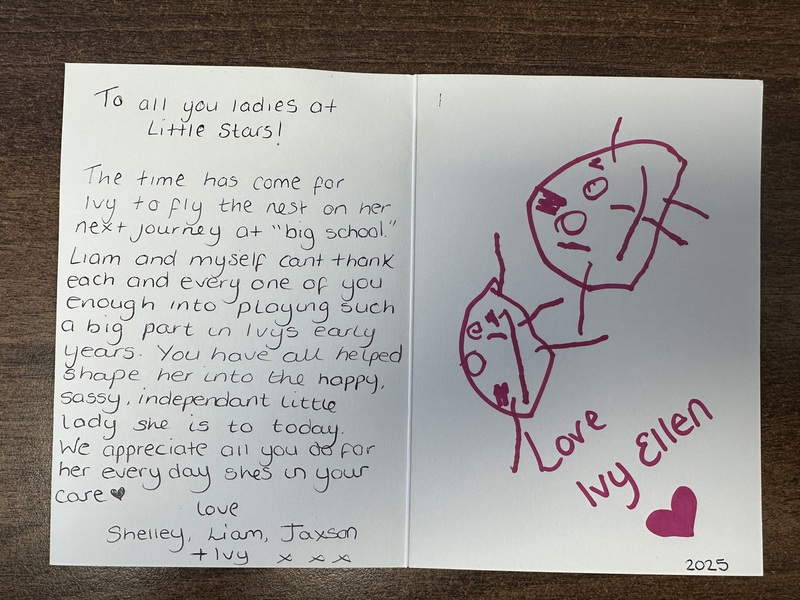 To all you ladies at
Little Stars!
The time has come for
Ivy to fly the nest on her
next journey at "big school."
Liam and myself cant thank
each and every one of you
enough into playing such
a big part in Ivys early
years. You have all helped
shape her into the happy,
sassy, independant little
lady she is to today.
We appreciate all you do for
her every day shes in your
care ♥
love
Shelley, Liam, Jaxson
+ Ivy x x x
Love
Ivy Ellen
2025